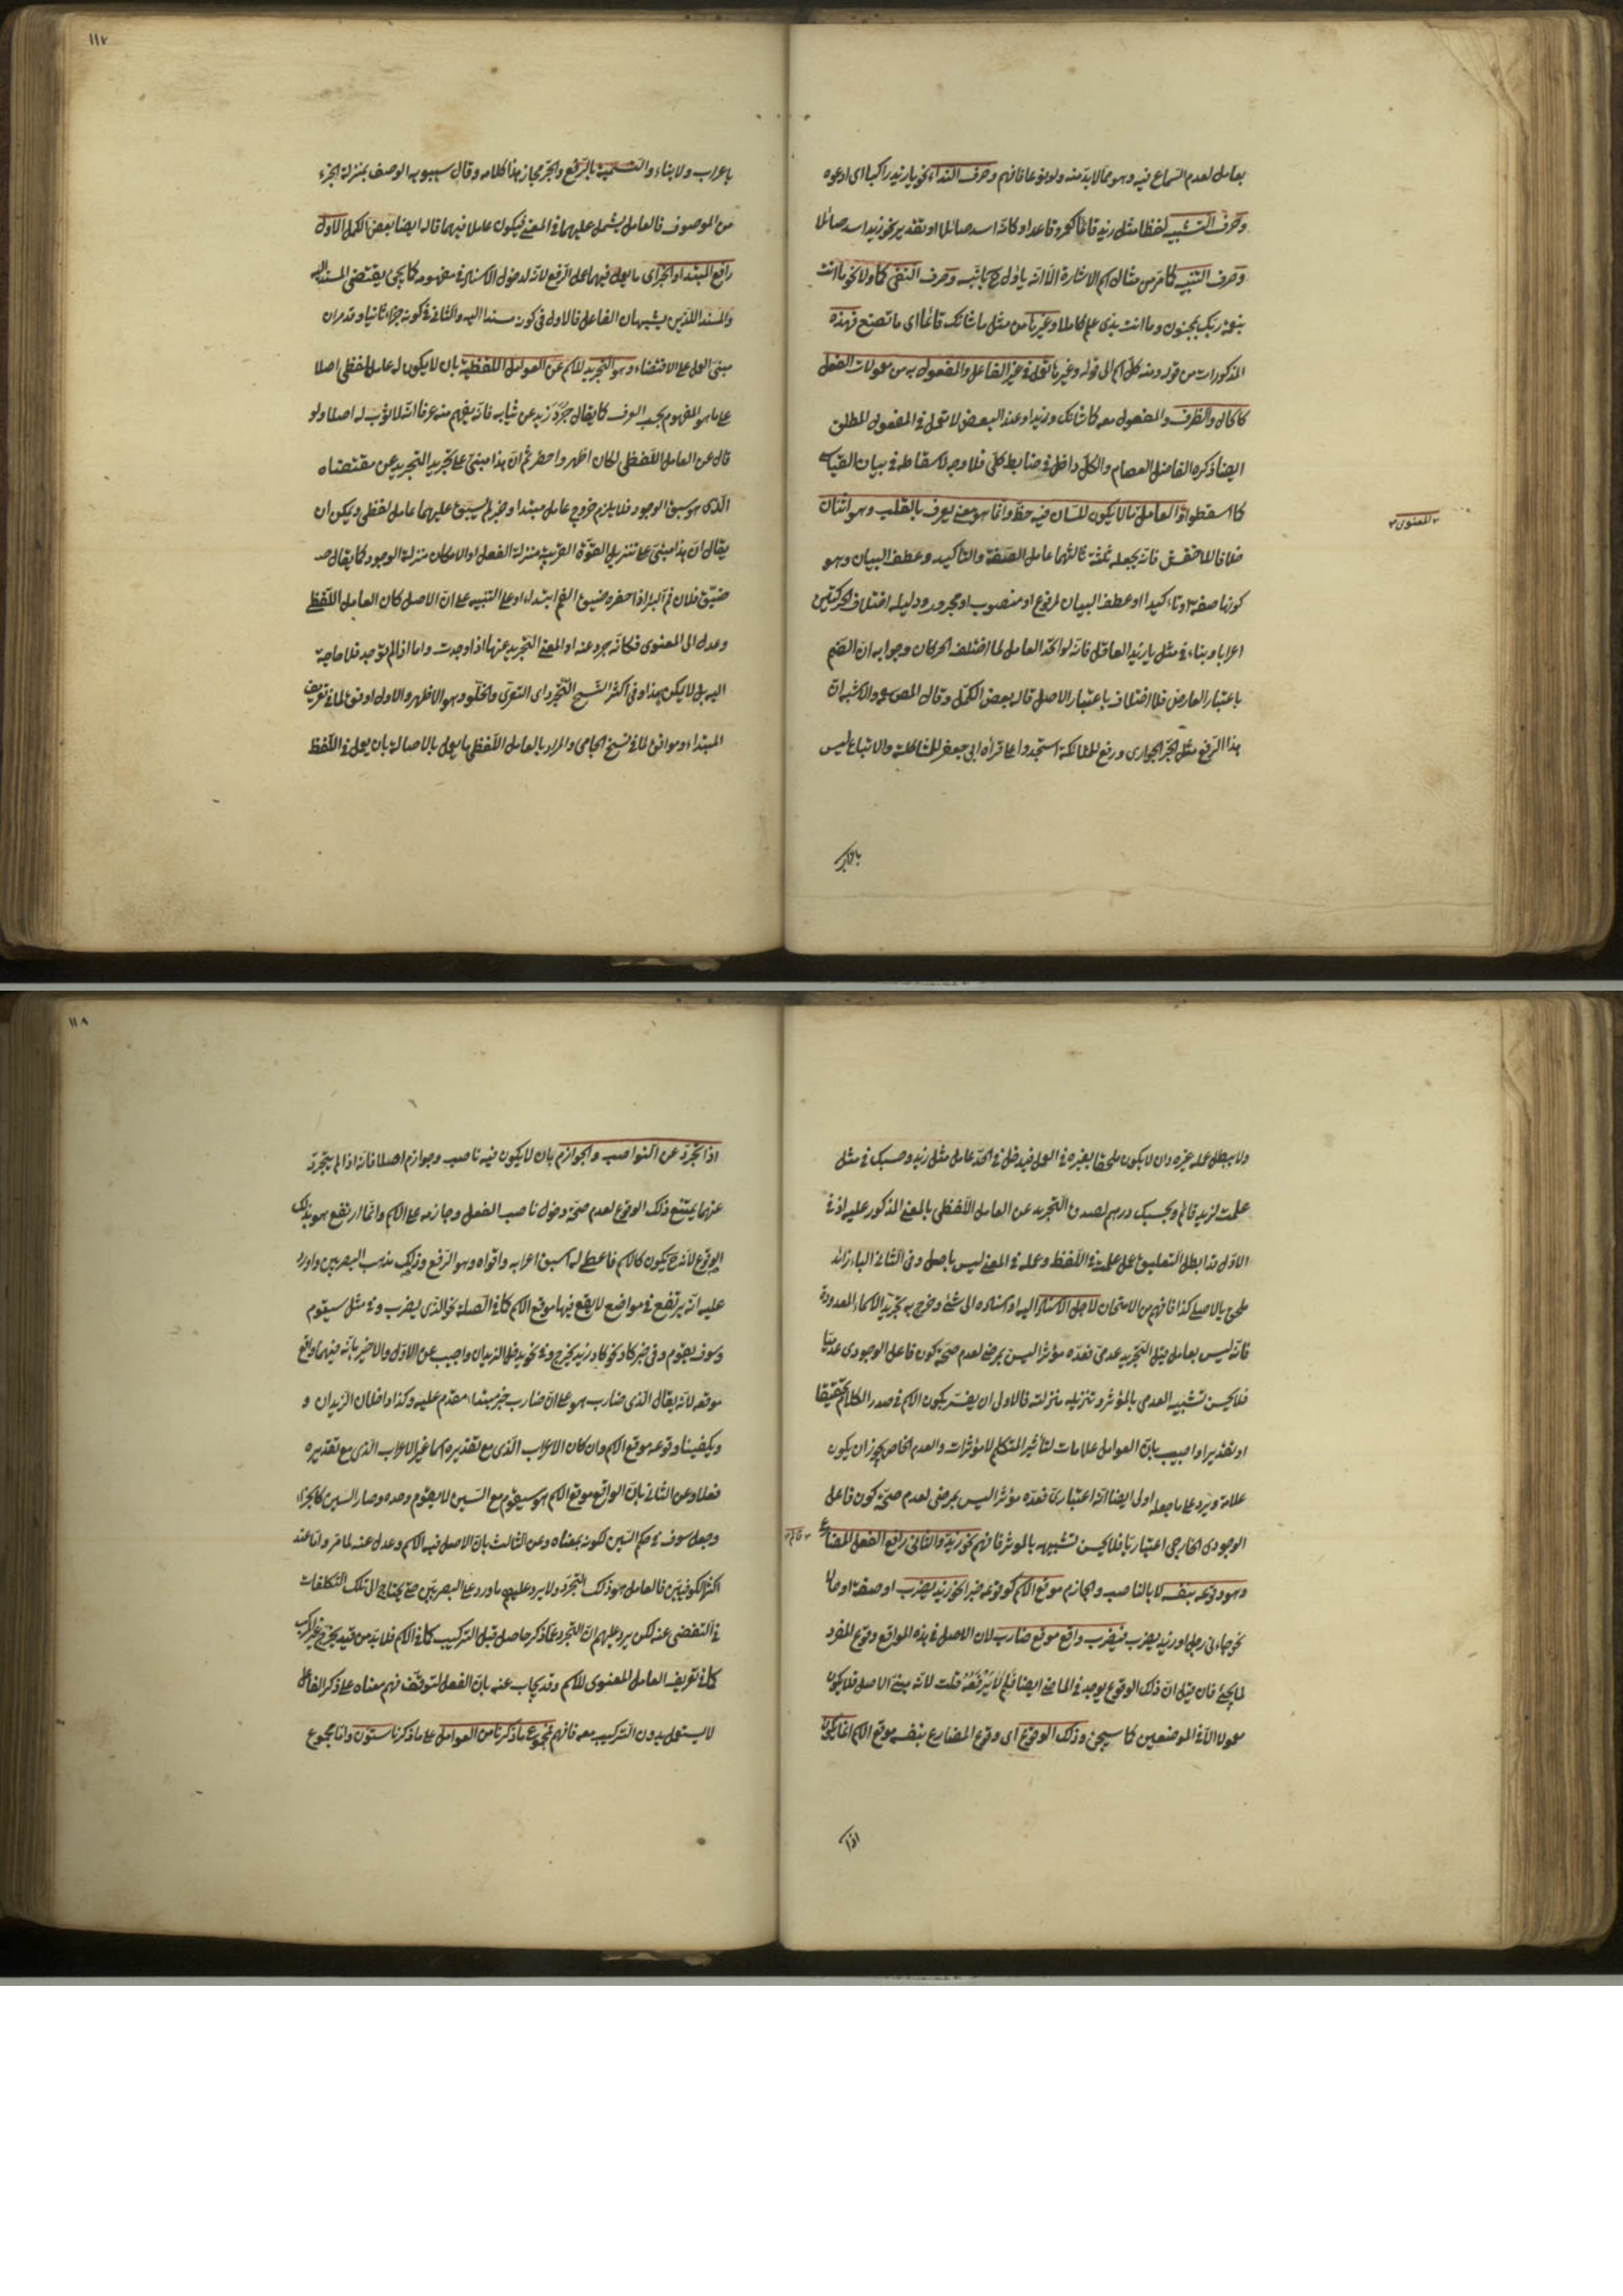 بعامل لعدم السماع فيه وهو مما لا بد منه ولو نوعا فافهم وحرف النداء نحو يا زيد راكبا اى ادعوه
وحرف التشبيه لفظا مثل زيد قائما كعمرو قاعدا وكانه اسد صائلا او تقدير نحو زيد اسد صائلا
وحرف التنبيه كما مر من مثال اسم الاشارة الا انه ياول ح بانبه وحرف النفى كما ولا نحو ما انت
بنعمة ربك بمجنون وما انت بذى علم كاملا وغيرها من مثل ما شانك قائما اى ما تصنع فهذه
المذكورات من قوله ومنه كل اسم الى قوله وغيرها تعمل فى غير الفاعل والمفعول به من معمولات الفعل
كالحال والظرف والمفعول معه كما شانك وزيدا وعند البعض لا تعمل فى المفعول المطلق
ايضا ذكره الفاضل العصام والكل داخل فى ضابط كلى فلا وجه لاسقاطه فى بيان القياسى
كما اسقطوا والعامل ما لا يكون للسان فيه حظ وانما هو معنى يعرف بالقلب وهو اثنان
المعنوى
خلافا للاخفش فانه يجعله ثلثة ثالثهما عامل الصفة والتاكيد وعطف البيان وهو
كونها صفة وتاكيدا او عطف البيان لمرفوع او منصوب او مجرور ودليله اختلاف الحركتين
اعرابا وبناء فى مثل يا زيد العاقل فانه لو اتحد العامل لما اختلف الحركان وجوابه ان الضم
باعتبار العارض فلا اختلاف باعتبار الاصل قاله بعض الكمل وقال المص والاشبه ان
هذا الرفع مثل الجر الجوارى ورفع للملائكة اسجدوا على قراءة ابى جعفر للمشاكلة والاتباع ليس
باعراب
١١٧
باعراب ولا بناء والتسمية بالرفع والجر مجاز هذا كلامه وقال سيبويه الوصف بمنزلة الجزء
من الموصوف فالعامل يشمل عليهما فى المعنى فيكون عاملا فيهما قاله ايضا بعض الكمل الاول
رافع المبتدا والخبر اى ما يعمل فيهما عمل الرفع لانه لدخول الاسناد فى مفهومه كما يجئ يقتضى المسند اليه
والمسند اللذين يشبهان الفاعل فالاول فى كونه مسندا اليه والثانى فى كونه جزء ثانيا وقد مر ان
مبنى العمل على الاقتضاء وهو التجريد للاسم عن العوامل اللفظية بان لا يكون له عامل لفظى اصلا
على ما هو المفهوم بحسب العرف كما يقال جرد زيد عن ثيابه فانه يفهم منه عرفا انه لا ثوب له اصلا ولو
قال عن العامل اللفظى لكان اظهر واحضر ثم ان هذا مبنى على تجريد التجريد عن مقتضاه
الذى هو سبق الوجود فلا يلزم خروج عامل مبتدا وخبر لم يسبق عليهما عامل لفظى ويمكن ان
يقال ان هذا مبنى على تنزيل القوة القريبة منزلة الفعل او الامكان منزلة الوجود كما يقال
ضيق فلان فم البئر اذا حفره ضيق الفم ابتداء او على التنبيه على ان الاصل كان العامل اللفظى
وعدل الى المعنوى فكانه جرد عنه او المعنى التجريد عنها اذا وجدت واما اذا لم توجد فلا حاجة
اليه بل لا يمكن هذا وفى اكثر النسخ التجرد اى التعرى والخلو وهو الاظهر والاول اوفق لما فى تعريف
المبتداء وموافق لما فى نسخ الجامى والمراد بالعامل اللفظى ما يعمل بالاصالة بان يعمل فى اللفظ
ولا يبطل عمله غيره وان لا يكون ملحقا بغيره فى العمل فيدخل فى الحد عامل مثل زيد وحسبك فى مثل
علمت لزيد قائم وبحسبك درهم لصدق التجريد عن العامل اللفظى بالمعنى المذكور عليه اذ فى
الاول قد ابطل التعليق عمل علمت فى اللفظ وعمله فى المعنى ليس باصل وفى الثانى الباء زائد
ملحق بالاصلى كذا فافهم من الامتحان لاجل الاسناد اليه او اسناده الى شئ وخرج به تجريد الاسماء المعدودة
فانه ليس بعامل قيل التجريد عدمى فعده مؤثرا ليس بمرضى لعدم صحة كون فاعل الوجودى عدميا
فلا يحسن تشبيه العدمى بالمؤثر وتنزيله منزلته فالاولى ان يفسر بكون الاسم فى صدر الكلام تحقيقا
او تقديرا واجيب بان العوامل علامات لتأثير المتكلم لا مؤثرات والعدم الخاص يجوز ان يكون
علامة ويرد على ما جعله اولى ايضا انه اعتبارى فعده مؤثرا ليس بمرضى لعدم صحة كون فاعل
الوجودى الخارجى اعتباريا فلا يحسن تشبيهه بالموثر فافهم نحو زيد والثانى رافع الفعل المضارع
قائم
وهو وقوعه بنفسه لا بالناصب والجازم موقع الاسم كوقوعه خبرا نحو زيد يضرب او صفة او حالا
نحو جاءنى رجل او زيد يضرب فيضرب واقع موقع ضارب لان الاصل فى هذه المواقع وقوع المفرد
لما يجئ فان قيل ان ذلك الوقوع يوجد فى الماضى ايضا فلم لا يرفعه قلت لانه مبنى الاصل فلا يكون
معمولا الا فى الموضعين كما سيجئ وذلك الوقوع اى وقوع المضارع بنفسه موقع الاسم انما يكون
اذا
١١٨
اذا تجرد عن النواصب والجوازم بان لا يكون فيه ناصب وجوازم اصلا فانه اذا لم يتجرد
عنهما يمتنع ذلك الوقوع لعدم صحة دخول ناصب الفعل وجازمه على الاسم وانما ارتفع هو بذلك
الوقوع لانه ح يكون كالاسم فاعطى له اسبق اعرابه واقواه وهو الرفع وذلك مذهب البصريين واورد
عليه انه يرتفع فى مواضع لا يقع فيها موقع الاسم كما فى الصلة نحو الذى يضرب وفى مثل سيقوم
وسوف يقوم وفى خبر كاد نحو كاد زيد يخرج وفى نحو يدخل الزيدان واجيب عن الاول والاخير بانه فيهما واقع
موقعه لانه يقال الذى ضارب هو على ان ضارب خبر مبتداء مقدم عليه وكذا داخلان الزيدان و
ويكفينا وقوعه موقع الاسم وان كان الاعراب الذى مع تقديره اسما غير الاعراب الذى مع تقديره
فعلا وعن الثانى بان الواقع موقع الاسم هو سيقوم مع السين لا يقوم وحده وصار السين كالجزء
وجعل سوف فى حكم السين لكونه بمعناه وعن الثالث بان الاصل فيه الاسم وعدل عنه لما مر واما عند
اكثر الكوفيين فالعامل هو ذلك التجرد ولا يرد عليهم ما ورد على البصريين حتى يحتاج الى تلك التكلفات
فى التفصى عنه لكن يرد عليهم ان التجرد عما ذكر حاصل قبل التركيب كما فى الاسم فلا بد من قيد يخرج غير المركب
كما فى تعريف العامل المعنوى للاسم وقد يجاب عنه بان الفعل لتوقف فهم معناه على ذكر الفاعل
لا يستعمل بدون التركيب معه فافهم فمجموع ما ذكرنا من العوامل على ما ذكرنا ستون وانما مجموع